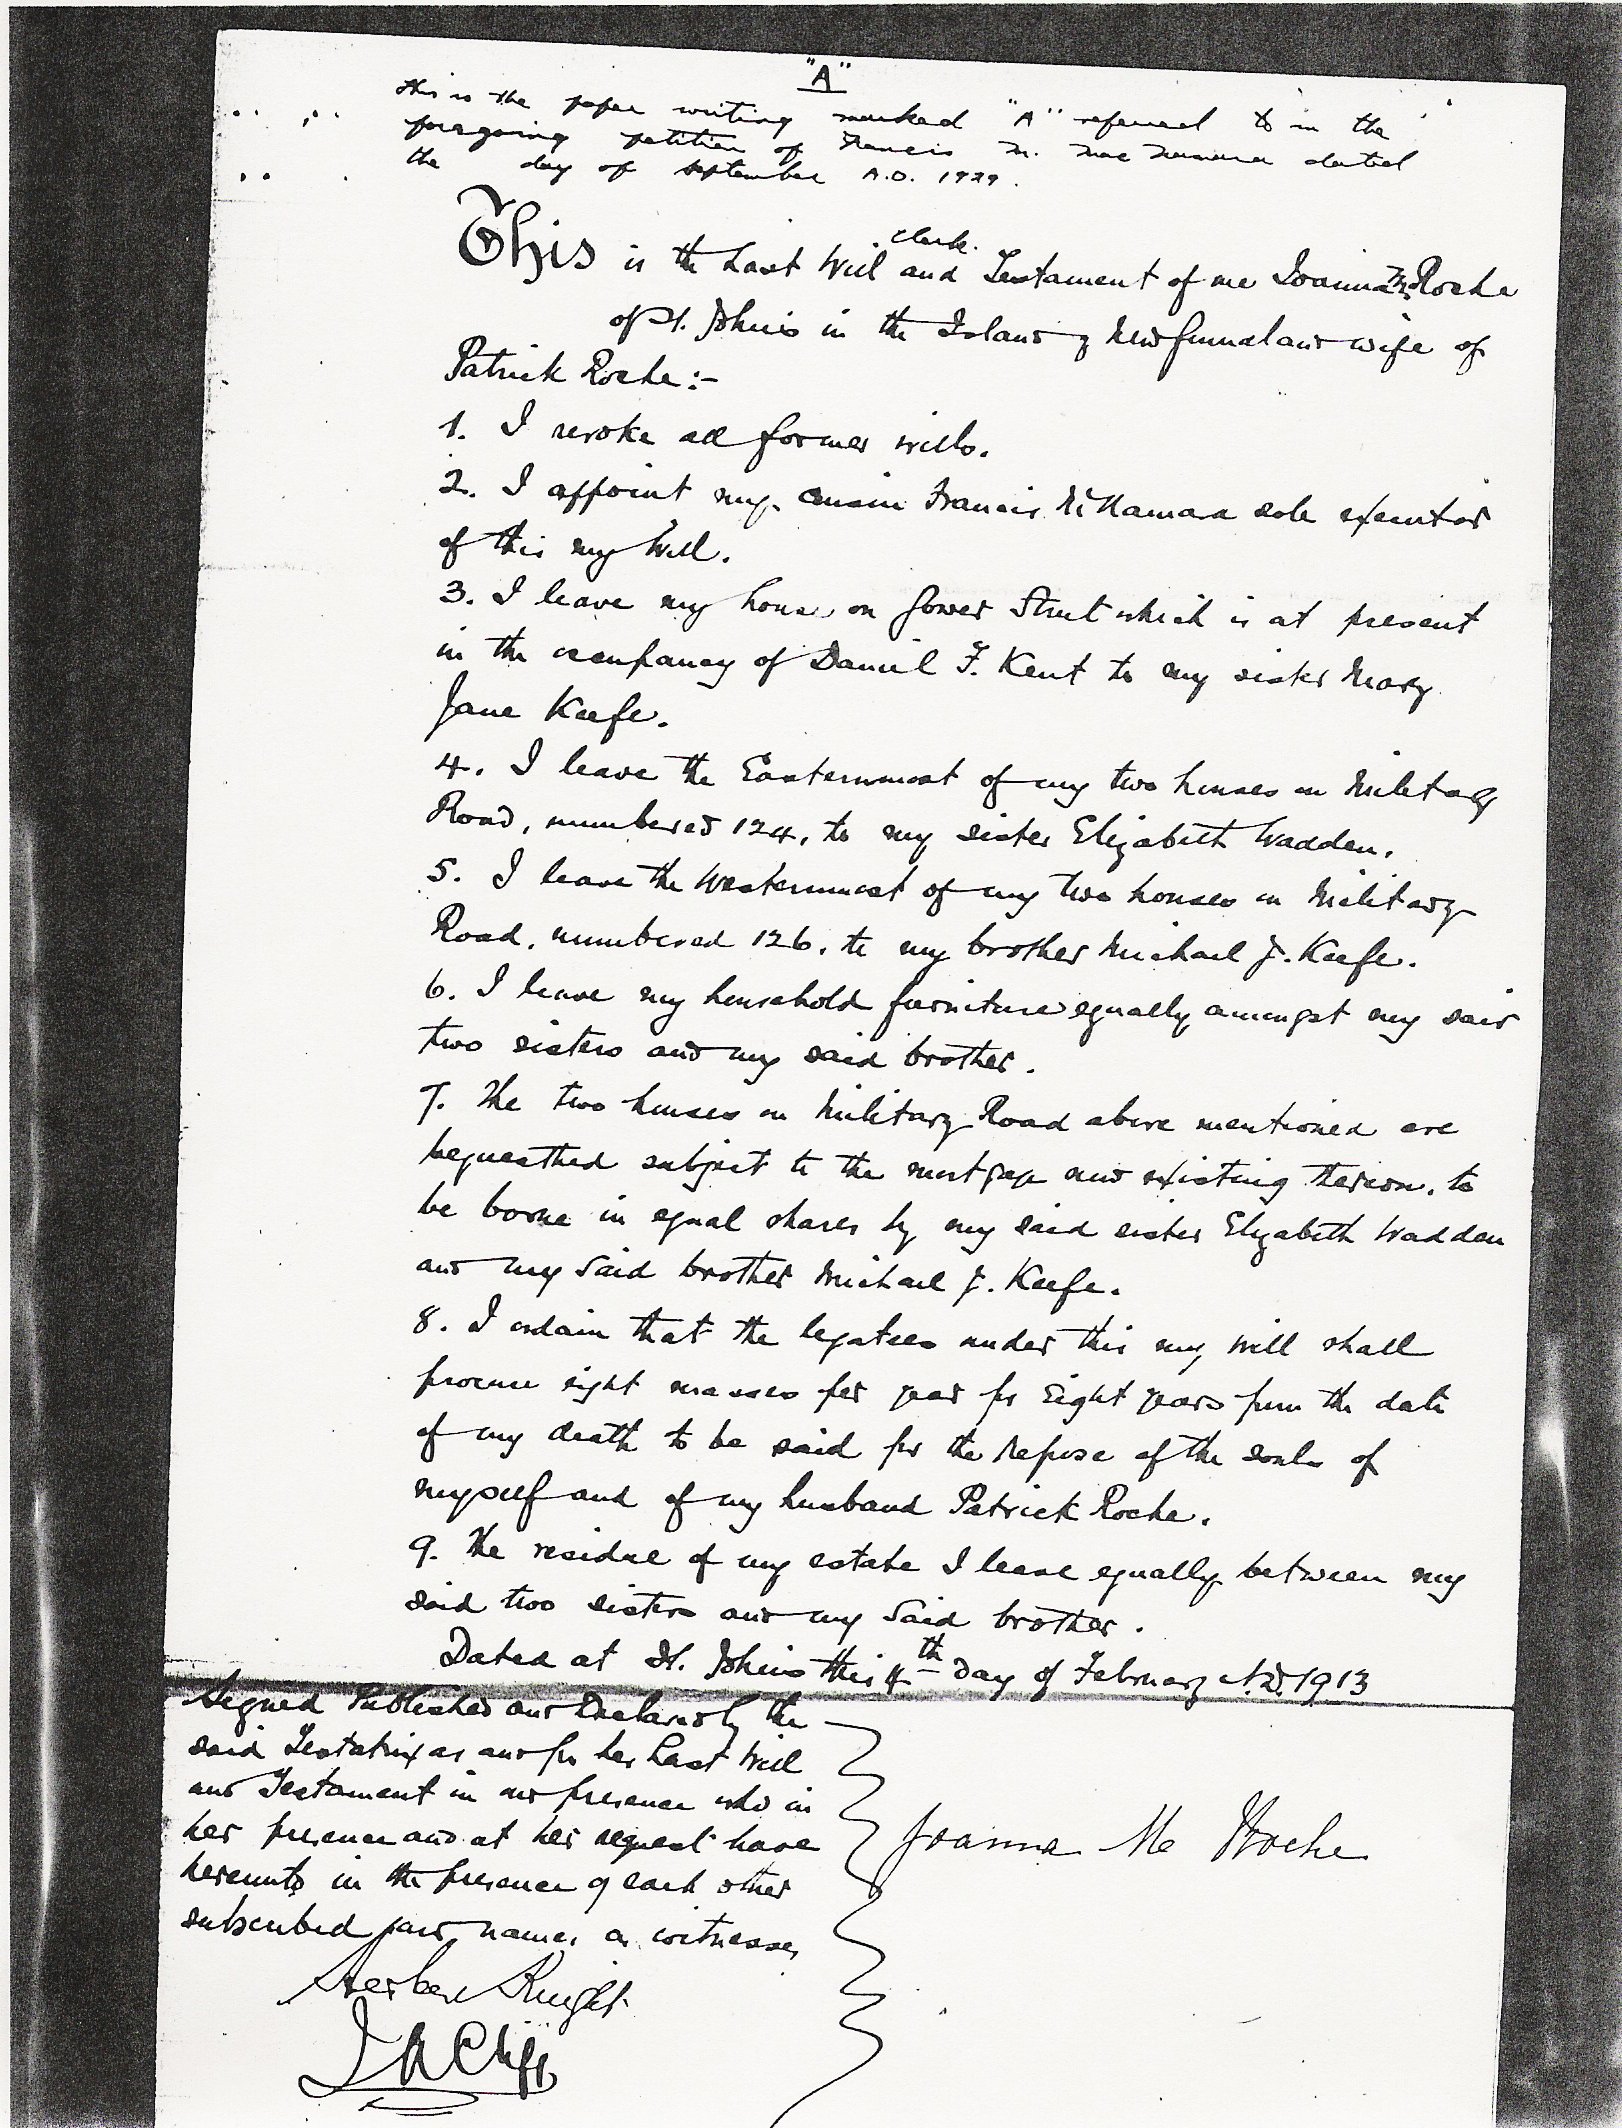 "A"
this is the paper writing marked "A" referred to in the
foregoing petition of Francis M. Mac Namara dated
the day of September A.D. 1929.
This is the Last Will and Testament of me Joanna M. Roche
of St. John's in the Island of Newfoundland wife of
Patrick Roche:-
1. I revoke all former wills.
2. I appoint my cousin Francis McNamara sole executor
of this my Will.
3. I leave my house on Gower Street which is at present
in the occupancy of Daniel F. Kent to my sister Mary
Jane Keefe.
4. I leave the Easternmost of my two houses on Military
Road, numbered 124, to my sister Elizabeth Wadden.
5. I leave the Westernmost of my two houses on Military
Road, numbered 126, to my brother Michael J. Keefe.
6. I leave my household furniture equally amongst my said
two sisters and my said brother.
7. The two houses on Military Road above mentioned are
bequeathed subject to the mortgage now existing thereon, to
be borne in equal shares by my said sister Elizabeth Wadden
and my said brother Michael J. Keefe.
8. I ordain that the legatees under this my Will shall
procure eight masses per year for Eight years from the date
of my death to be said for the Repose of the souls of
myself and of my husband Patrick Roche.
9. The residue of my estate I leave equally between my
said two sisters and my said brother.
Dated at St. John's this 4th day of February A.D. 1913
Signed Published and Declared by the
said Testatrix as and for her Last Will
and Testament in our presence who in
her presence and at her request have
hereunto in the presence of each other
subscribed our names as witnesses
Joanna M Roche
Herbert Knight